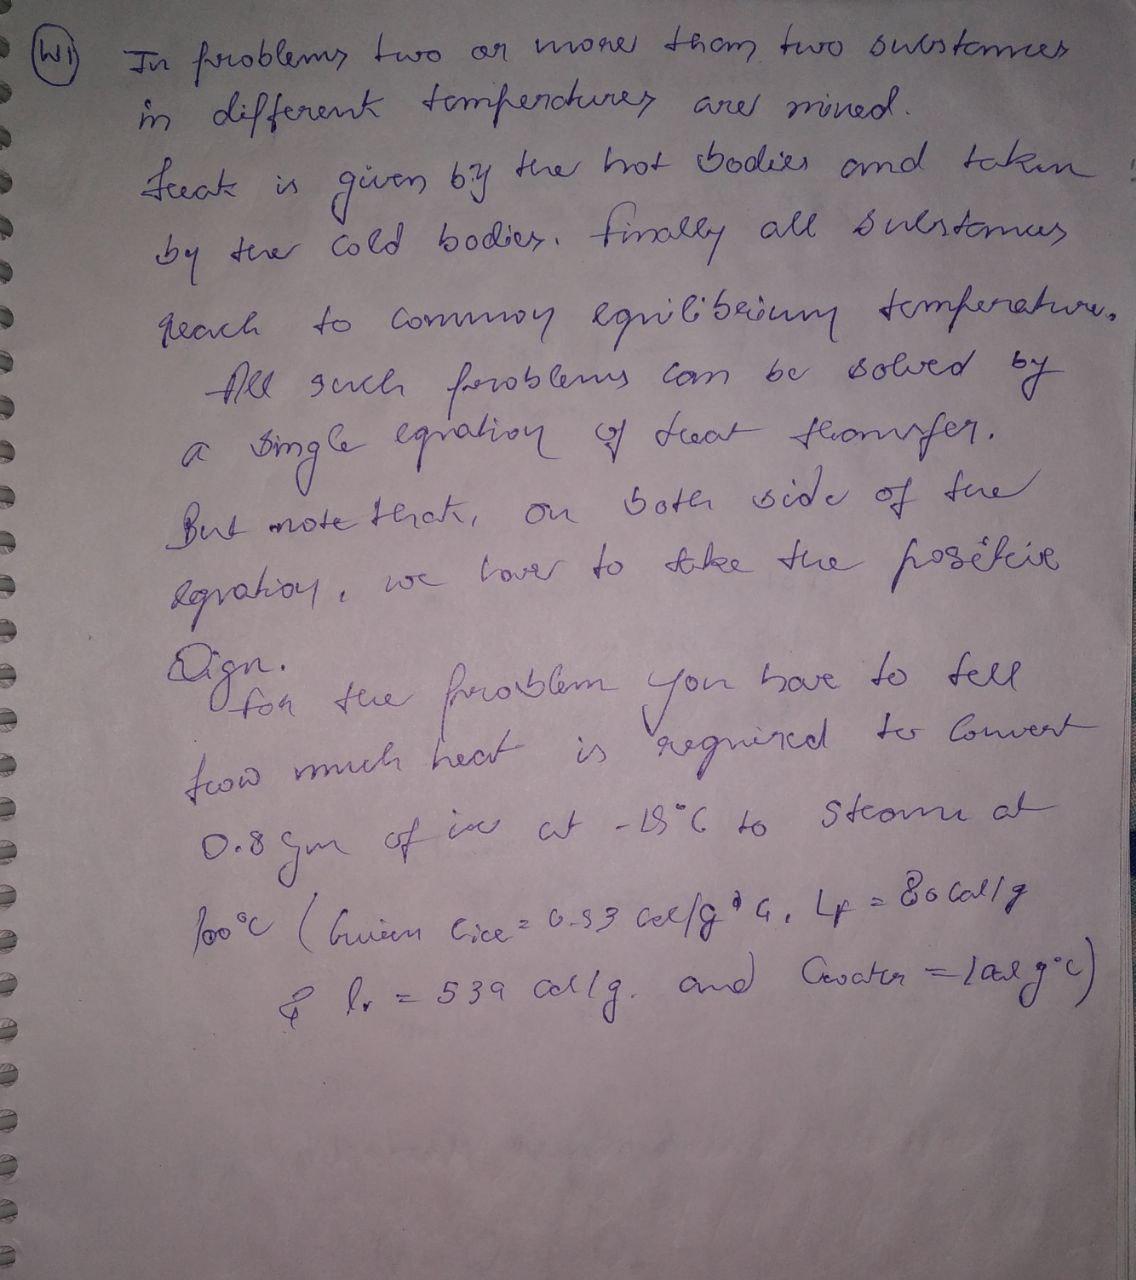 W1
In problems two or more than two substances
in different temperatures are mixed.
Heat is given by the hot bodies and taken
by the cold bodies. finally all substances
reach to common equilibrium temperature.
All such problems can be solved by
a single equation of heat transfer.
But note that, on both side of the
equation, we have to take the positive
Sign.
for the problem you have to tell
how much heat is required to convert
0.8 gm of ice at -15°C to steam at
100°C (Given Cice = 0.53 cal/g°C, Lf = 80 cal/g
& lv = 539 cal/g. and Cwater = 1 cal g°C)